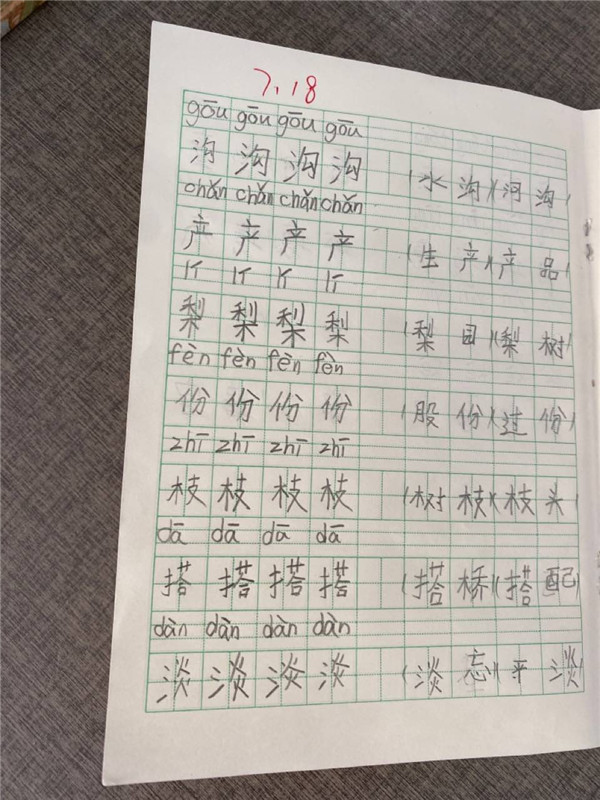 7.18
gōu gōu gōu gōu
沟 沟 沟 沟 (水沟)(河沟)
chǎn chǎn chǎn chǎn
产 产 产 产 (生产)(产品)
lí lí lí lí
梨 梨 梨 梨 (梨)(梨树)
fèn fèn fèn fèn
份 份 份 份 (股份)(过份)
zhī zhī zhī zhī
枝 枝 枝 枝 (树枝)(枝头)
dā dā dā dā
搭 搭 搭 搭 (搭桥)(搭配)
dàn dàn dàn dàn
淡 淡 淡 淡 (淡忘)(平淡)